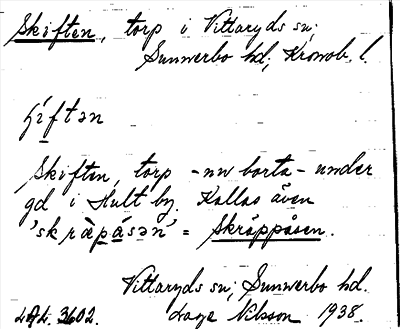 Skiften, torp i Vittaryds sn;
Sunnerbo hd; Kronob. l.
Skiften, torp - nu borta - under
gd i Hult by. Kallas även
= Skräppåsen.
Vittaryds sn; Sunnerbo hd.
3602. Nilsson 1938.